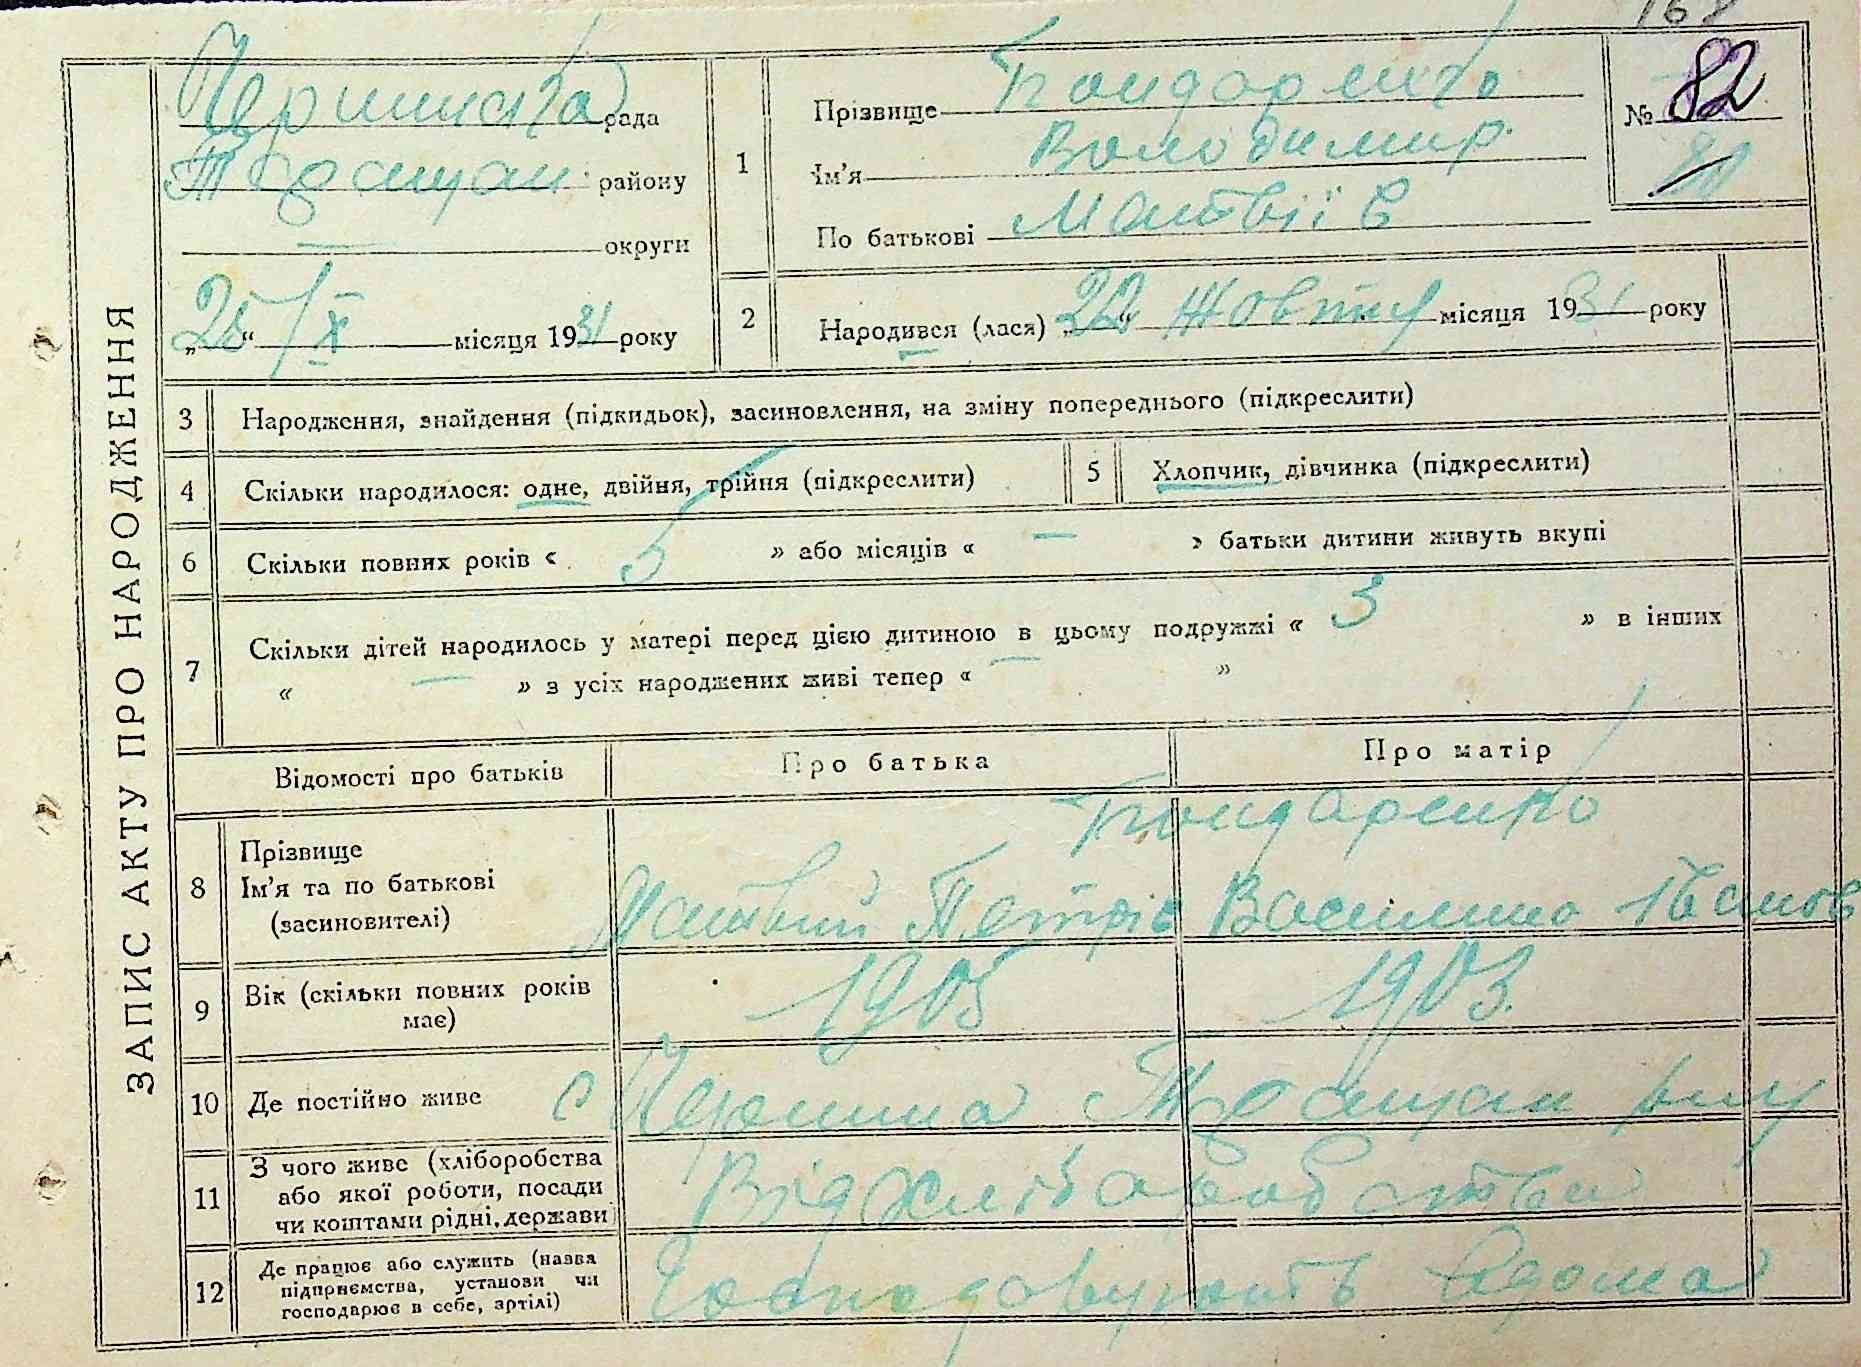 168
ЗАПИС АКТУ ПРО НАРОДЖЕННЯ
рада
району
округи
„25“ / X місяця 1931 року
1
Прізвище Бондаренко
Ім'я Володимир
По батькові Матвіїв
№ 82
2
Народився (лася) „22“ Жовтня місяця 1931 року
3 Народження, знайдення (підкидьок), засиновлення, на зміну попереднього (підкреслити)
4 Скільки народилося: одне, двійня, трійня (підкреслити)
5 Хлопчик, дівчинка (підкреслити)
6 Скільки повних років « 5 » або місяців « — » батьки дитини живуть вкупі
7 Скільки дітей народилось у матері перед цією дитиною в цьому подружжі « 3 » в інших
« — » з усіх народжених живі тепер « — »
Відомості про батьків Про батька Про матір
8 Прізвище
Ім'я та по батькові
(засиновителі)
Бондаренко
Матвий Петрів Василина Іванов
9 Вік (скільки повних років
має)
1905 1903.
10 Де постійно живе с
11 З чого живе (хліборобства
або якої роботи, посади
чи коштами рідні, держави)
Від хліборобства
12 Де працює або служить (назва
підприємства, установи чи
господарює в себе, артілі)
Господарують вдома